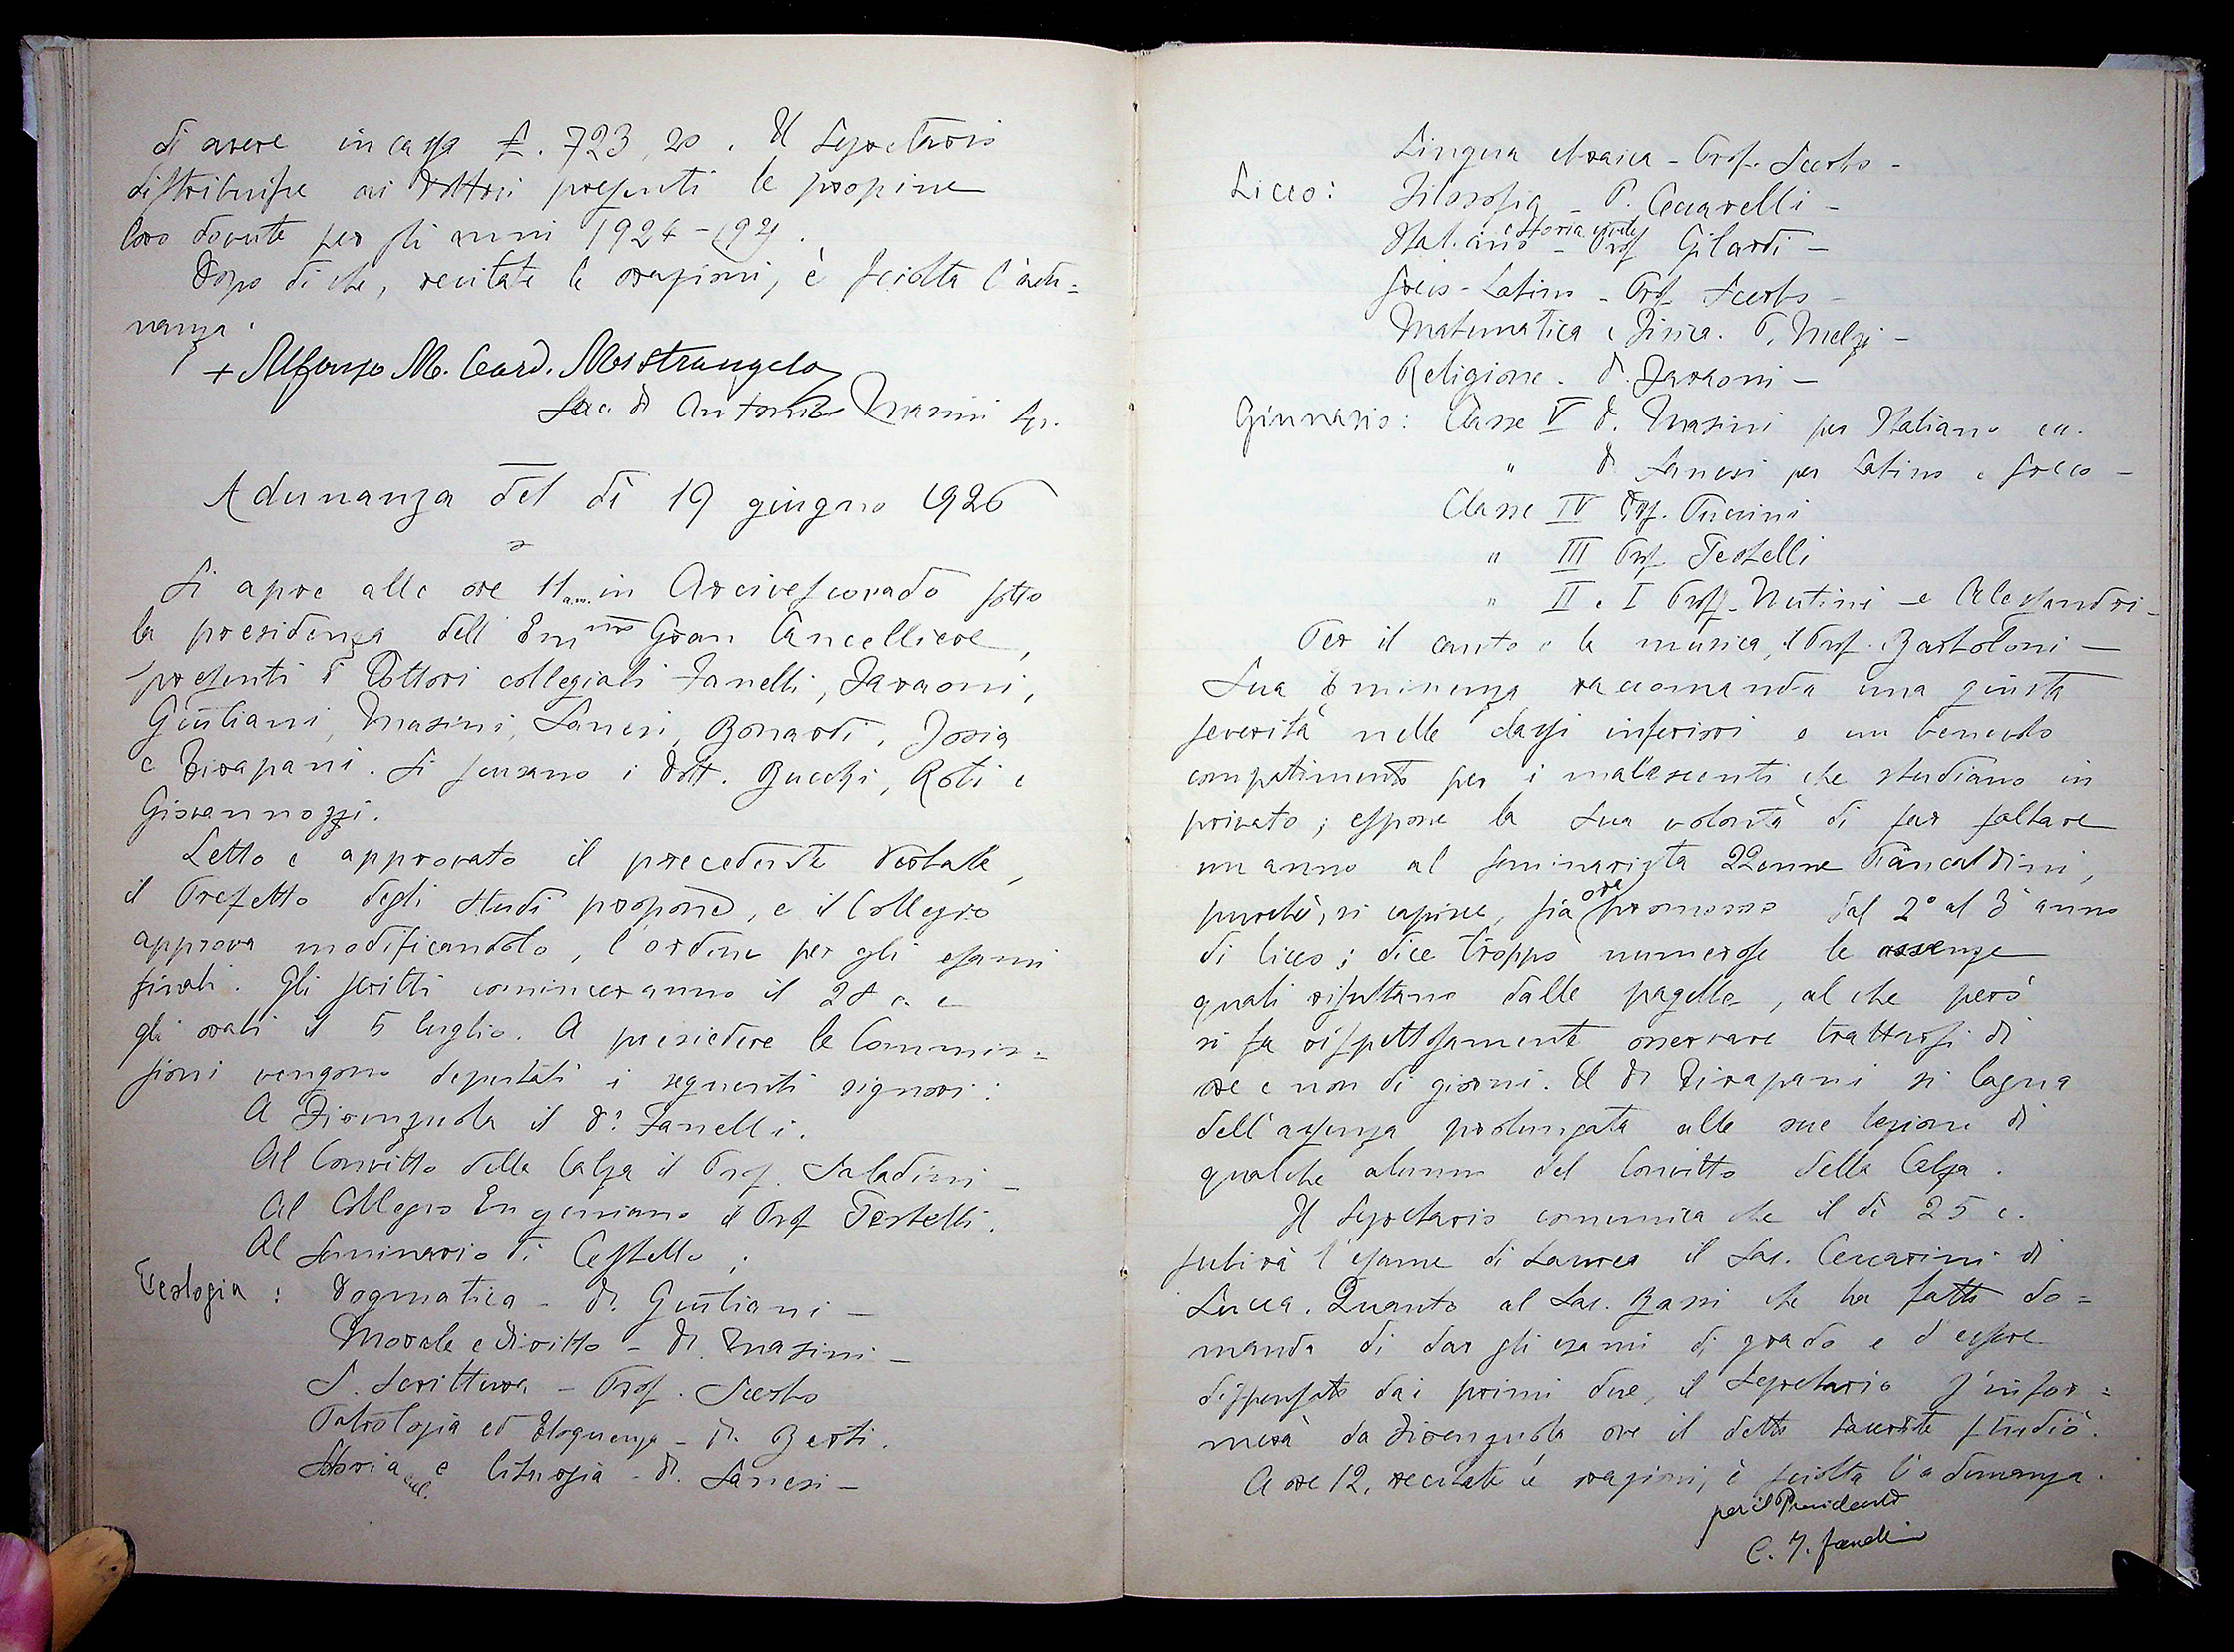 di avere in cassa £. 723,20. Il Segretario
distribuisce ai Dottori presenti le propine
loro dovute per gli anni 1924-192
Dopo di che, recitate le orazioni, è sciolta l'adu=
nanza.
+ Alfonso M. Card. Mistrangelo
Sac. D Antonio Masini Sgr.
Adunanza del dì 19 giugno 1926
Si apre alle ore 11 a.m. in Arcivescovado sotto
la presidenza dell' Em.mo Gran Cancelliere,
presenti i Dottori collegiali Fanelli, Faraoni,
Giuliani, Masini, Sanesi, Bonardi, Josia
e Tirapani. Si scusano i Dott. Bucchi, Roti e
Giovannozzi.
Letto e approvato il precedente Verbale,
il Prefetto degli Studi propone, e il Collegio
approva modificandolo, l'ordine per gli esami
finali. Gli scritti cominceranno il 28 c. e
gli orali il 5 luglio. A presiedere le Commis=
sioni vengono deputati i seguenti signori:
A Firenzuola il D. Fanelli.
Al Convitto della Calza il Prof. Saladini -
Al Collegio Eugeniano il Prof Testelli.
Al Seminario di Cestello:
Teologia: Dogmatica - D. Giuliani -
Morale e Diritto - D. Masini -
S. Scrittura - Prof. Scerbo
Patrologia ed Eloquenza - D. Berti.
Storia eccl. e liturgia - D. Sanesi -
Lingua ebraica - Prof. Scerbo -
Liceo: Filosofia - P. Ceccarelli -
Italiano e Storia civile - Prof Gilardi -
Greco-Latino - Prof Scerbo -
Matematica e Fisica. P. Melzi -
Religione. D. Faraoni -
Ginnasio: Classe V D. Masini per Italiano ecc.
" D. Sanesi per Latino e Greco -
Classe IV Prof. Puccini
" III Prof Testelli
" II e I Proff. Nutini e Alessandri -
Per il canto e la musica, il Prof. Bartoloni -
Sua Eminenza raccomanda una giusta
severità nelle classi inferiori e un benevolo
compatimento per i malescenti che studiano in
privato; espone la sua volontà di far saltare
un anno al seminarista 22enne Biancaldini,
purchè, si capisce, sia promosso dal 2° al 3° anno
di liceo; dice troppo numerose le assenze
quali risultano dalle pagelle, al che però
si fa rispettosamente osservare trattarsi di
ore e non di giorni. Il D. Tirapani si lagna
dell'assenza prolungata alle sue lezioni di
qualche alunno del Convitto della Calza.
Il Segretario comunica che il dì 25 c.
subirà l'esame di Laurea il Sac. Ceccarini di
Lucca. Quanto al Sac. Bassi che ha fatto do=
manda di dar gli esami di grado e d'essere
dispensato dai primi due, il Segretario s'infor=
merà da Firenzuola ove il detto Sacerdote studiò.
A ore 12, recitate le orazioni, è sciolta l'adunanza.
per il Presidente
C. F. Fanelli